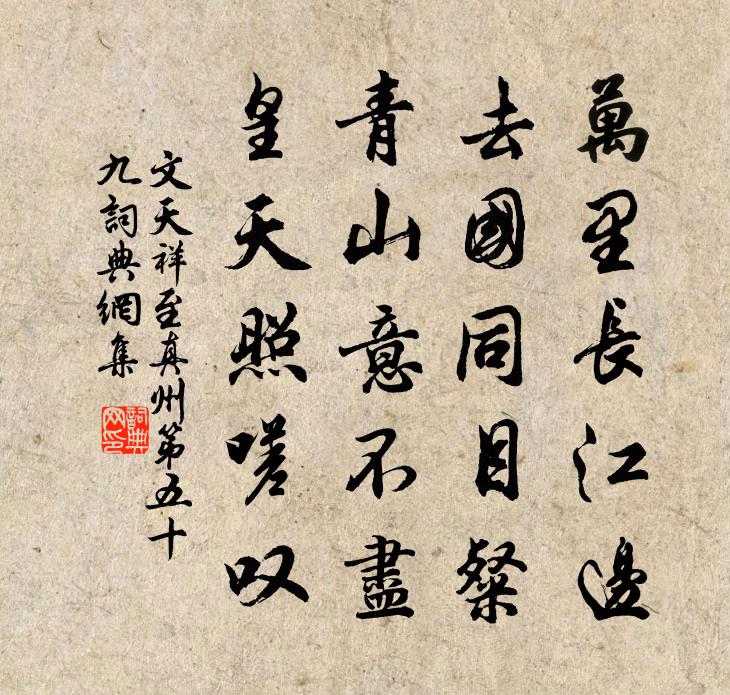 萬里長江邊
去國同目粲
青山意不盡
皇天照嗟叹
文天祥至真州第五十
九詞典網集
詞典
网印